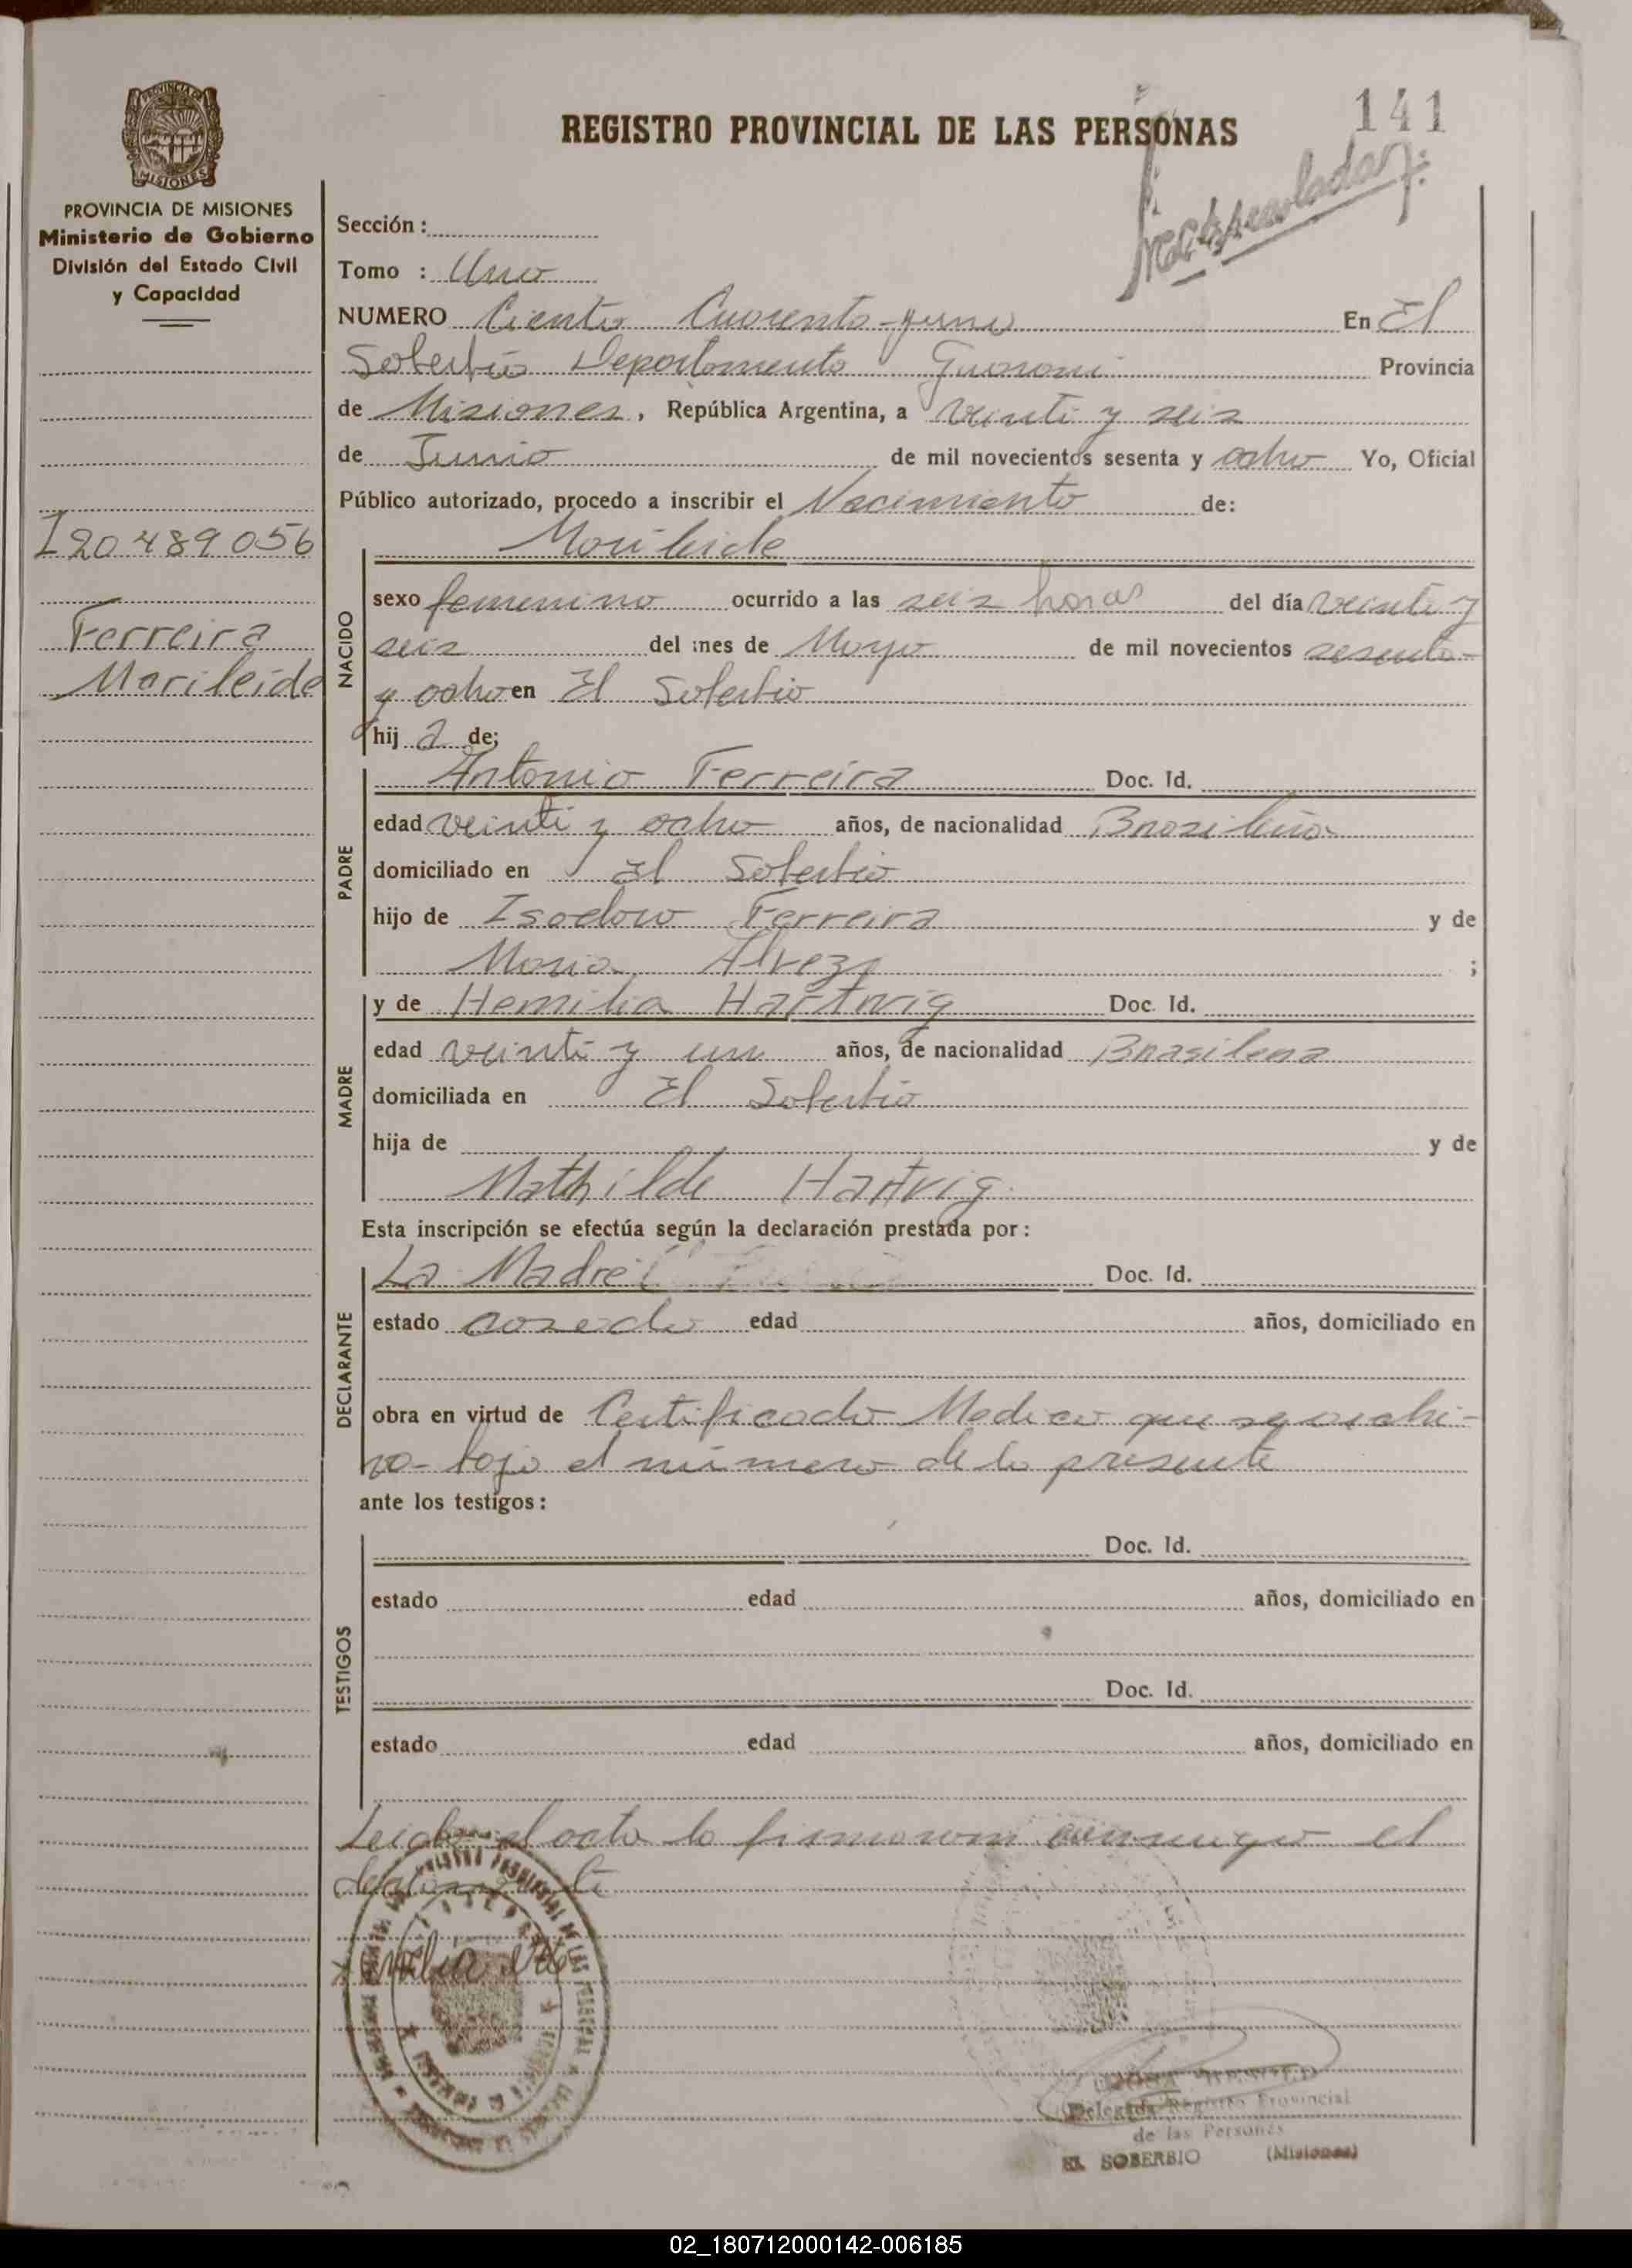 141
REGISTRO PROVINCIAL DE LAS PERSONAS
PROVINCIA DE MISIONES
Ministerio de Gobierno
División del Estado Civil
y Capacidad
Sección :
Tomo : Uno
NUMERO Ciento Cuarenta y uno En El
Soberbio Departamento Guarani Provincia
de Misiones, República Argentina, a veinti y seis
de Junio de mil novecientos sesenta y ocho Yo, Oficial
Público autorizado, procedo a inscribir el Nacimiento de:
I 20.489.056
Ferreira
Marileide
NACIDO
Marileide
sexo femenino ocurrido a las seis horas del día veinti y
seis del mes de Mayo de mil novecientos sesenta-
y ocho en El Soberbio
hij a de;
PADRE
Antonio Ferreira Doc. Id.
edad veinti y ocho años, de nacionalidad Brasileña
domiciliado en El Soberbio
hijo de Ferreira y de
Maria Alvez ;
MADRE
y de Hemilia Hartwig Doc. Id.
edad veinti y un años, de nacionalidad Brasilena
domiciliada en El Soberbio
hija de y de
Mathilde Hartvig.
Esta inscripción se efectúa según la declaración prestada por :
DECLARANTE
La Madre Doc. Id.
estado casado edad años, domiciliado en
obra en virtud de Certificado Medico que se archi-
va bajo el número de la presente
ante los testigos :
TESTIGOS
Doc. Id.
estado edad años, domiciliado en
Doc. Id.
estado edad años, domiciliado en
Leida el acta la firmaron conmigo el
Delegada Registro Provincial
de las Personas
EL SOBERBIO (Misiones)
02_180712000142-006185